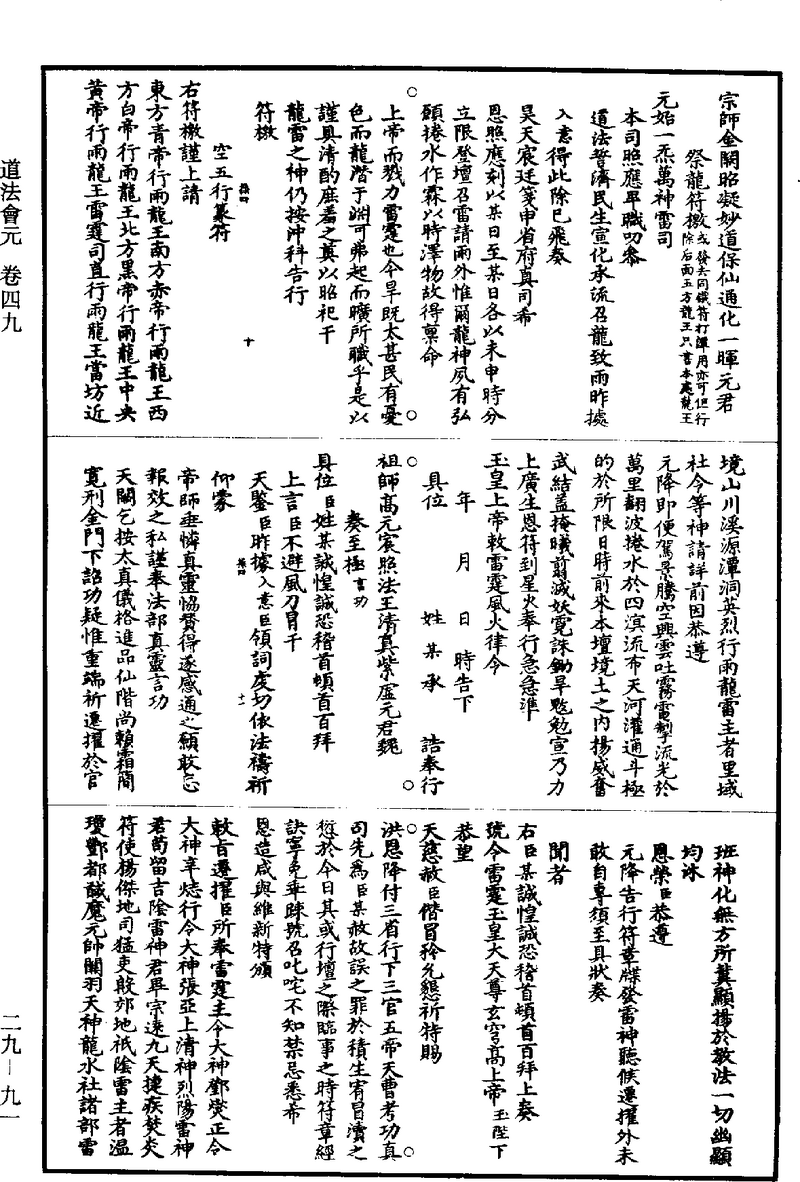 宗師金闕昭凝妙道保仙通化一暉元君
祭龍符檄或發去同鐵符打潭用亦可但行除后面五方龍王只書本處龍王
元始一炁萬神雷司
本司照應早職叨黍
道法誓濟民生宣化承流召龍致雨昨據
入意得此除已飛奏
昊天宸廷箋申省府真司希
恩照應刻以某日至某日各以未申時分
立限登壇召雷請雨外惟爾龍神夙有弘
願捲水作霖以時澤物故得稟命
上帝而戮力雷霆也今旱既太甚民有憂
色而龍潛于淵可弗起而曠所職乎是以
謹具清酌庶羞之奠以昭祀于
龍雷之神仍按沖科告行
符檄
空五行篆符
右符檄謹上請
東方青帝行雨龍王南方赤帝行雨龍王西
方白帝行雨龍王北方黑帝行雨龍王中央
黃帝行雨龍王雷霆司直行雨龍王當坊近
境山川溪源潭洞英烈行雨龍雷主者里域
社令等神請詳前因恭遵
元降即便駕景騰空興雲吐霧電掣流光於
萬里翻波捲水於四溟流布天河灌通斗極
的於所限日時前來本壇境土之内揚威奮
武結蓋掩曦翦滅妖霓誅鋤旱魃勉宣乃力
上廣生恩符到星火奉行急急準
玉皇上帝敕雷霆風火律令
年 月 日 時告下
具位 姓 某 承 誥奉行
祖師高元宸照法王清真紫虛元君魏
奏至極言功
具位臣姓某誠惶誠恐稽首頓首百拜
上言臣不避風刀冒干
天鑒臣昨據入意臣領詞虔切依法禱祈
仰蒙
帝師垂憐真靈協贊得遂感通之願敢忘
報效之私謹奉法部真靈言功
天闕乞按太真儀格進品仙階尚賴霜簡
寬刑金門下詔功疑惟重端祈遷擢於官
班神化無方所冀顯揚於教法一切幽顯
均沐
恩榮臣恭遵
元降告行符章牒發雷神聽候遷擢外未
敢自專須至具狀奏
聞者
右臣某誠惶誠恐稽首頓首百拜上奏
號令雷霆玉皇大天尊玄穹高上帝玉陛下
恭望
天慈赦臣僭冒矜允懇祈特賜
洪恩降付三省行下三官五帝天曹考功真
司先爲臣某赦故誤之罪於積生宥冒瀆之
愆於今日其或行壇之際臨事之時符章經
訣寧免乖疎號召叱咤不知禁忌悉希
恩造咸與維新特頒
敕旨遷擢臣所奉雷霆主令大神鄧燮正令
大神辛㷓行令大神張亞上清神烈陽雷神
君苟留吉陰雷神君畢宗遠九天捷疾焚炎
符使楊傑地司猛吏殷郊地祇陰雷主者温
瓊酆都馘魔元帥關羽天神龍水社諸部雷
道法會元 卷四九
二九—九一